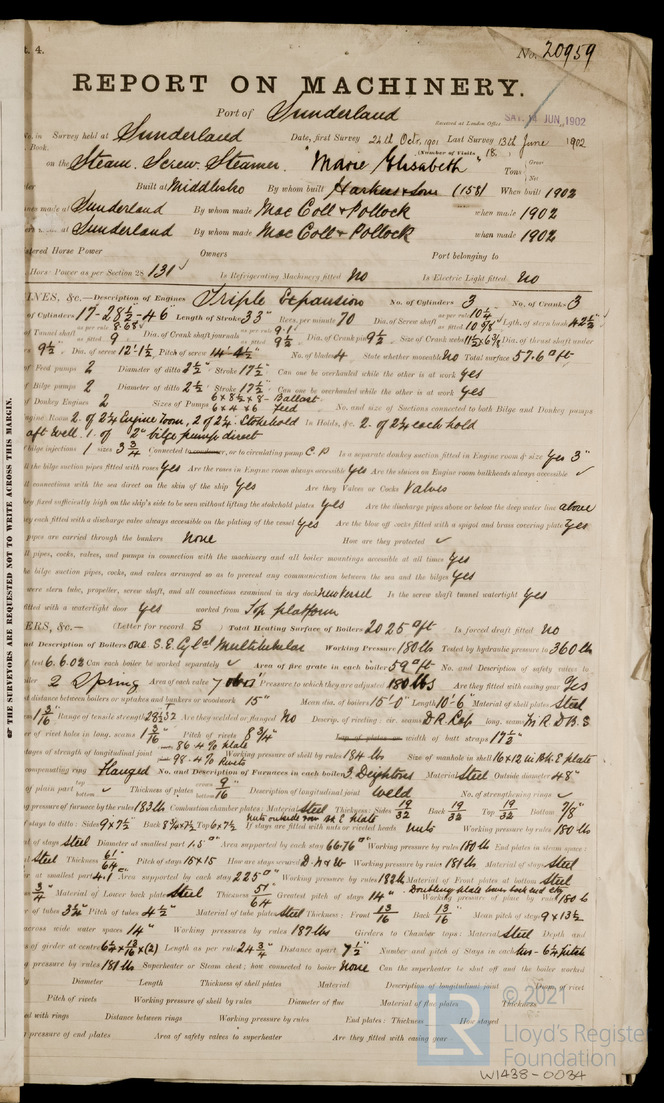 t. 4.
No. 20959
REPORT ON MACHINERY.
Port of Sunderland
Received at London Office SAT. 14 JUN 1902
No. in Survey held at Sunderland Date, first Survey 24th Octr. 1901 Last Survey 13th June 1902
Book. (Number of Visits 18
on the Steam. Screw. Steamer. "Marie Elisabeth" Tons Gross Net
Built at Middlesbro By whom built Harkess & Sons (158) When built 1902
made at Sunderland By whom made Mac Coll & Pollock when made 1902
made at Sunderland By whom made Mac Coll & Pollock when made 1902
Horse Power Owners Port belonging to
Horse Power as per Section 28 131 Is Refrigerating Machinery fitted No Is Electric Light fitted No
INES, &c.—Description of Engines Triple Expansion No. of Cylinders 3 No. of Cranks 3
of Cylinders 17-28½-46" Length of Stroke 33" Revs. per minute 70 Dia. of Screw shaft as per rule 10½ as fitted 10 7/8" Lgth. of stern bush 42½"
of Tunnel shaft as per rule 8.68 as fitted 9 Dia. of Crank shaft journals as per rule 9.1 as fitted 9½ Dia. of Crank pin 9½ Size of Crank webs Dia. of thrust shaft under
9½" Dia. of screw 12'-1½ Pitch of screw 14-4½ No. of blades 4 State whether moveable No Total surface 57.6 ft
of Feed pumps 2 Diameter of ditto 2½" Stroke 17½" Can one be overhauled while the other is at work Yes
of Bilge pumps 2 Diameter of ditto 2½" Stroke 17½" Can one be overhauled while the other is at work Yes
of Donkey Engines 2 Sizes of Pumps 6 x 8½ x 8 - Ballast 6 x 4 x 6 Feed No. and size of Suctions connected to both Bilge and Donkey pumps
Engine Room 2. of 2¼ Engine Room, 2 of 2¼. Stokehold In Holds, &c. 2. of 2¼ each hold
aft well. 1. of 2" bilge pump direct
bilge injections 1 sizes 3¾ Connected to condenser, or to circulating pump C.P Is a separate donkey suction fitted in Engine room & size Yes 3"
ll the bilge suction pipes fitted with roses Yes Are the roses in Engine room always accessible Yes Are the sluices on Engine room bulkheads always accessible ✓
ll connections with the sea direct on the skin of the ship Yes Are they Valves or Cocks Valves
fixed sufficiently high on the ship's side to be seen without lifting the stokehold plates Yes Are the discharge pipes above or below the deep water line above
each fitted with a discharge valve always accessible on the plating of the vessel Yes Are the blow off cocks fitted with a spigot and brass covering plate Yes
pipes are carried through the bunkers None How are they protected ✓
ll pipes, cocks, valves, and pumps in connection with the machinery and all boiler mountings accessible at all times Yes
bilge suction pipes, cocks, and valves arranged so as to prevent any communication between the sea and the bilges Yes
were stern tube, propeller, screw shaft, and all connections examined in dry dock New Vessel Is the screw shaft tunnel watertight Yes
fitted with a watertight door Yes worked from Top platform
ERS, &c.— (Letter for record S) Total Heating Surface of Boilers 2025 ft Is forced draft fitted No
and Description of Boilers one S.E. Cylal Multitubular Working Pressure 180 lbs Tested by hydraulic pressure to 360 lb
test 6.6.02 Can each boiler be worked separately ✓ Area of fire grate in each boiler 59 ft No. and Description of safety valves to
2 Spring Area of each valve Pressure to which they are adjusted 180 lbs Are they fitted with easing gear Yes
distance between boilers or uptakes and bunkers or woodwork 15" Mean dia. of boilers 15'-0" Length 10'-6" Material of shell plates Steel
Range of tensile strength Are they welded or flanged No Descrip. of riveting: cir. seams D R Lap long. seams
of rivet holes in long. seams Pitch of rivets 8¾ width of butt straps 17½"
ntages of strength of longitudinal joint 86.4% Plate 98.4% Rivets Working pressure of shell by rules 184 lbs Size of manhole in shell 16 x 12 in
compensating ring Flanged No. and Description of Furnaces in each boiler 3. Deightons Material Steel Outside diameter 48"
of plain part Thickness of plates 9/16 Description of longitudinal joint weld No. of strengthening rings ✓
pressure of furnace by the rules 183 lbs Combustion chamber plates: Material Steel Thickness: Sides 19/32 Back 19/32 Top 19/32 Bottom 7/8"
of stays to ditto: Sides 9 x 7½ Back Top If stays are fitted with nuts or riveted heads Nuts Working pressure by rules 180 lbs
Steel Diameter at smallest part Area supported by each stay Working pressure by rules 180 lbs End plates in steam space:
Steel Thickness 61/64 Pitch of stays 15 x 15 How are stays secured D.N & W Working pressure by rules 181 lbs Material of stays Steel
at smallest part 4.1" Area supported by each stay 225 Working pressure by rules 182 lb Material of Front plates at bottom Steel
¾ Material of Lower back plate Steel Thickness 51/64 Greatest pitch of stays 14" Working pressure of plate by rules 180 lb
of tubes 3¼ Pitch of tubes 4½ Material of tube plates Steel Thickness: Front 13/16 Back 13/16 Mean pitch of stays 9 x 13½
across wide water spaces 14" Working pressures by rules 187 lbs Girders to Chamber tops: Material Steel Depth and
of girder at centre Length as per rule 24¾ Distance apart 7½" Number and pitch of Stays in each
pressure by rules 181 lbs Superheater or Steam chest; how connected to boiler None Can the superheater be shut off and the boiler worked
Diameter Length Thickness of shell plates Material Description of longitudinal joint Diam. of rivet
Pitch of rivets Working pressure of shell by rules Diameter of flue Material of flue plates Thickness
with rings Distance between rings Working pressure by rules End plates: Thickness How stayed
pressure of end plates Area of safety valves to superheater Are they fitted with easing gear
☞ THE SURVEYORS ARE REQUESTED NOT TO WRITE ACROSS THIS MARGIN.
© 2021
LR
Lloyd's Register
Foundation
W1438-0034